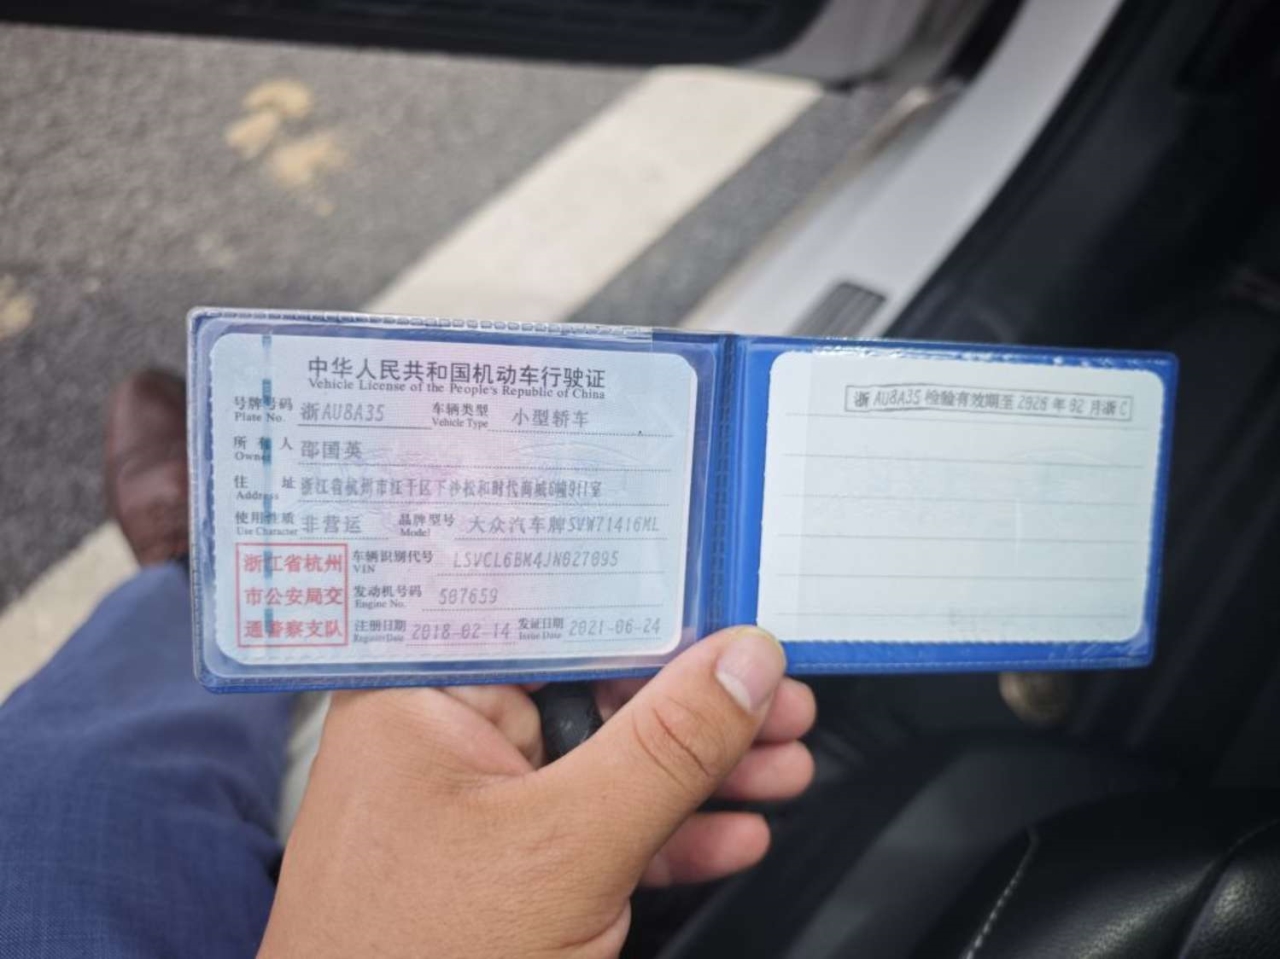 中华人民共和国机动车行驶证
Vehicle License of the People's Republic of China
号牌号码 浙AU8A35 车辆类型 小型轿车
Plate No. Vehicle Type
所有人 邵国英
Owner
住址 浙江省杭州市江干区下沙松和时代商城6幢911室
Address
使用性质 非营运 品牌型号 大众汽车牌SVW71416ML
Use Character Model
浙江省杭州
市公安局交
通警察支队
车辆识别代号 LSVCL6BM4JN027095
VIN
发动机号码 507659
Engine No.
注册日期 2018-02-14 发证日期 2021-06-24
Register Date Issue Date
浙AU8A35 检验有效期至2026年02月浙C